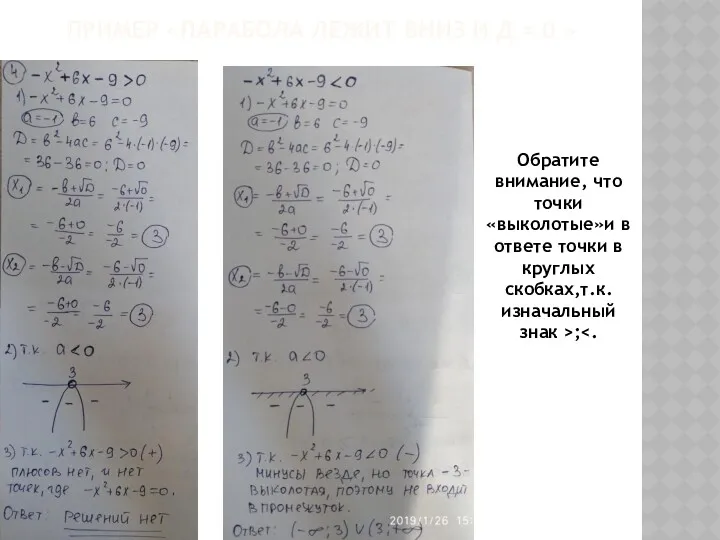 ПРИМЕР «ПАРАБОЛА ЛЕЖИТ ВНИЗ И Д = 0 »
4) -x²+6x-9>0
1) -x²+6x-9=0
a=-1 в=6 c=-9
D=в²-4ac=6²-4·(-1)·(-9)=
=36-36=0; D=0
x₁ = (-в+√D)/2a = (-6+√0)/(2·(-1)) =
= (-6+0)/-2 = -6/-2 = 3
x₂ = (-в-√D)/2a = (-6-√0)/(2·(-1)) =
= (-6+0)/-2 = -6/-2 = 3
2) т.к. a<0
3
- - -
3) т.к. -x²+6x-9>0 (+)
плюсов нет, и нет
точек, где -x²+6x-9=0.
Ответ: решений нет
-x²+6x-9<0
1) -x²+6x-9=0
a=-1 в=6 c=-9
D=в²-4ac=6²-4·(-1)·(-9)=
=36-36=0; D=0
x₁ = (-в+√D)/2a = (-6+√0)/(2·(-1)) =
= (-6+0)/-2 = -6/-2 = 3
x₂ = (-в-√D)/2a = (-6-√0)/(2·(-1)) =
= (-6-0)/-2 = -6/-2 = 3
2) т.к. a<0
3
- - -
3) т.к. -x²+6x-9<0 (-)
минусы везде, но точка -3-
выколотая, поэтому не входит
в промежуток.
2019/1/26 15:
Ответ: (-∞;3) ∪ (3;+∞)
Обратите
внимание, что
точки
«выколотые»и в
ответе точки в
круглых
скобках,т.к.
изначальный
знак >;<.